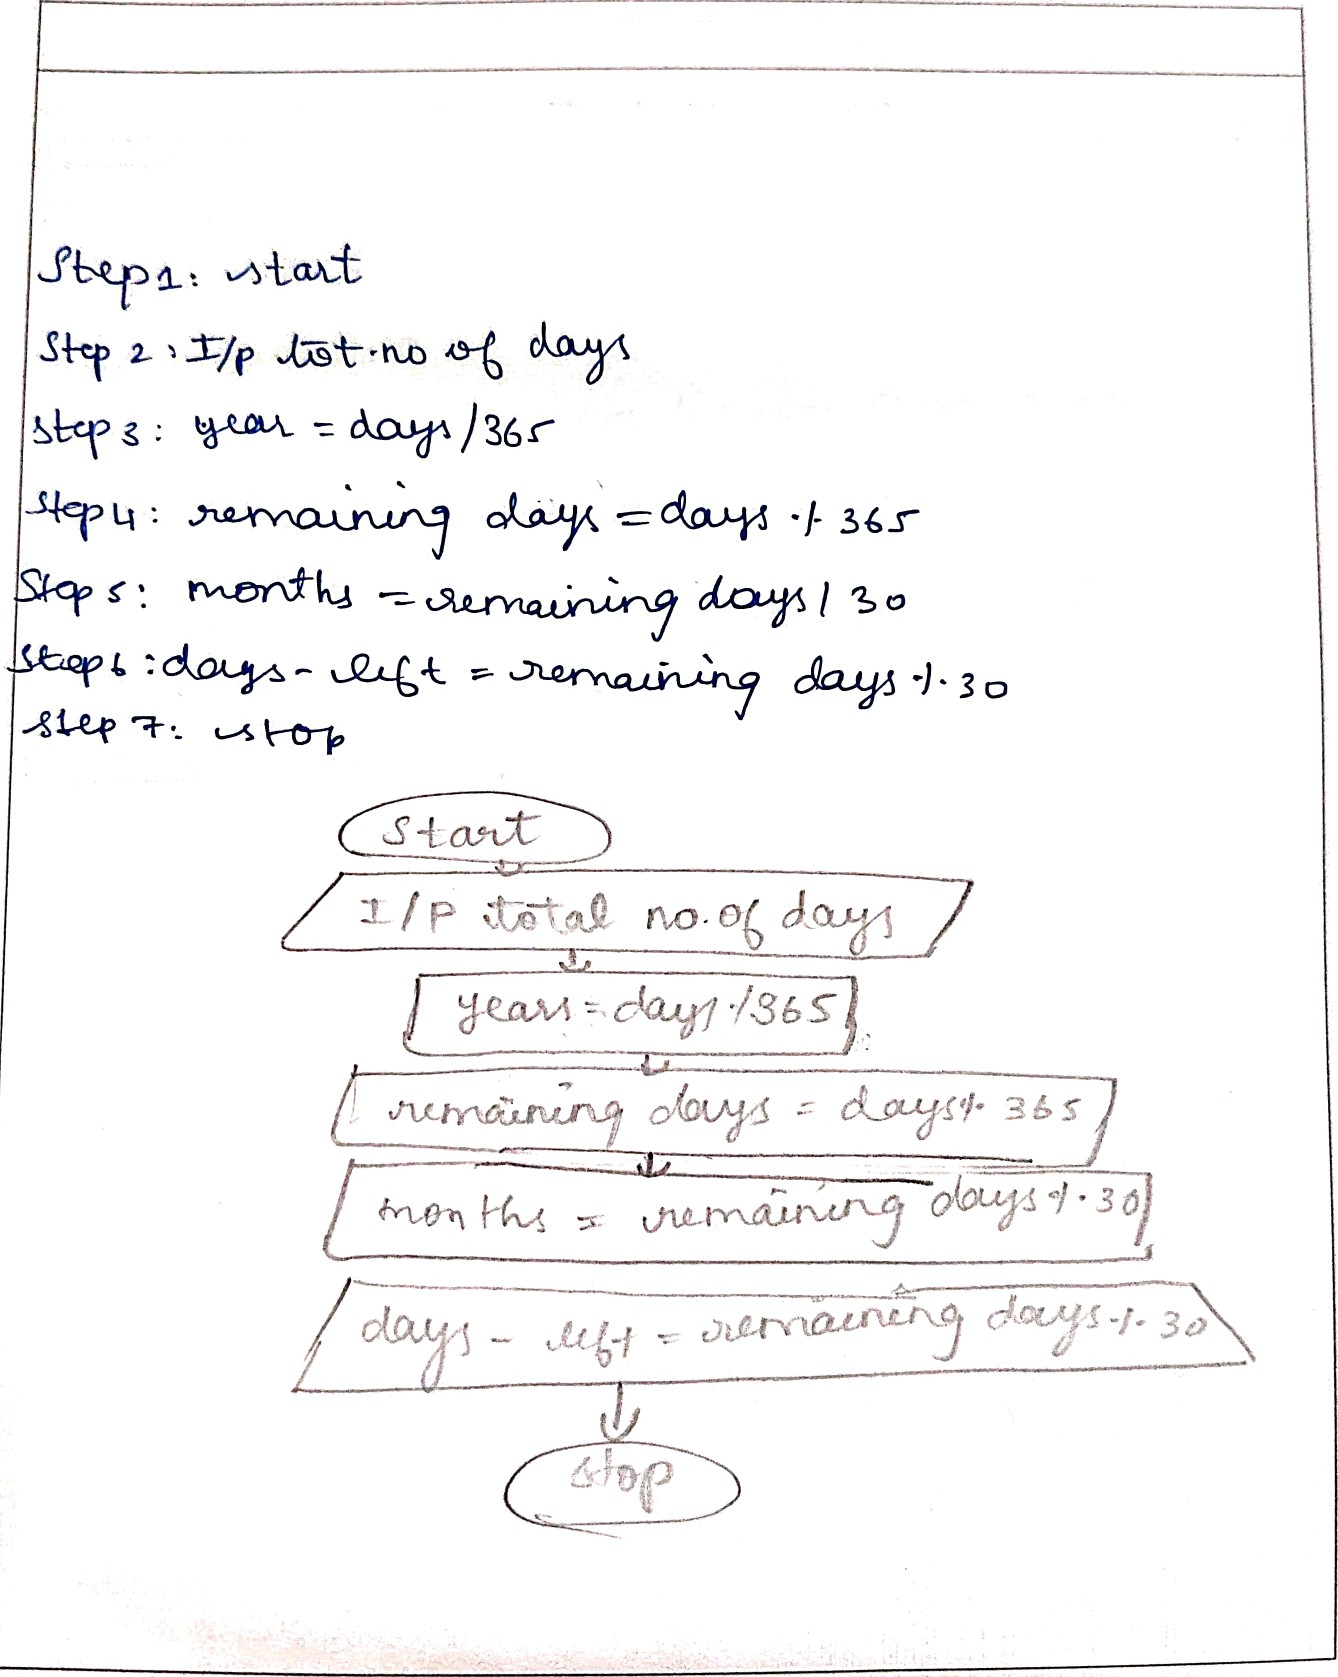 Step1: start
Step 2: I/p tot.no of days
step 3: year = days/365
Step 4: remaining days = days % 365
Step 5: months = remaining days / 30
Step 6: days - left = remaining days % 30
step 7: stop
Start
I/P total no. of days
years = days % 365
remaining days = days % 365
months = remaining days % 30
days - left = remaining days % 30
stop